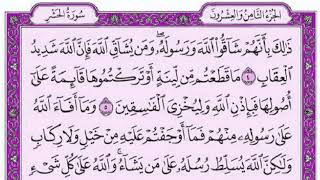 الجُزْءُ الثَّامِنُ وَالعِشْرُونَ سُورَةُ الحَشْرِ
ذَٰلِكَ بِأَنَّهُمْ شَاقُّوا۟ ٱللَّهَ وَرَسُولَهُۥ ۖ وَمَن يُشَآقِّ ٱللَّهَ فَإِنَّ ٱللَّهَ شَدِيدُ
ٱلْعِقَابِ ٤ مَا قَطَعْتُم مِّن لِّينَةٍ أَوْ تَرَكْتُمُوهَا قَآئِمَةً عَلَىٰٓ
أُصُولِهَا فَبِإِذْنِ ٱللَّهِ وَلِيُخْزِىَ ٱلْفَٰسِقِينَ ٥ وَمَآ أَفَآءَ ٱللَّهُ
عَلَىٰ رَسُولِهِۦ مِنْهُمْ فَمَآ أَوْجَفْتُمْ عَلَيْهِ مِنْ خَيْلٍ وَلَا رِكَابٍ
وَلَٰكِنَّ ٱللَّهَ يُسَلِّطُ رُسُلَهُۥ عَلَىٰ مَن يَشَآءُ ۚ وَٱللَّهُ عَلَىٰ كُلِّ شَىْءٍ